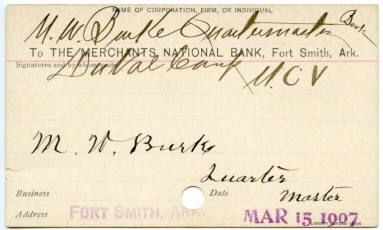 NAME OF CORPORATION, FIRM, OR INDIVIDUAL
M. W. Burke Quartermaster Book
To THE MERCHANTS NATIONAL BANK, Fort Smith, Ark.
Signatures and by whom made
DuVal Camp U.C.V
M. W. Burke
Quarter
Business Date Master
Address FORT SMITH, ARK. MAR 15 1907
LIBRARY BUREAU